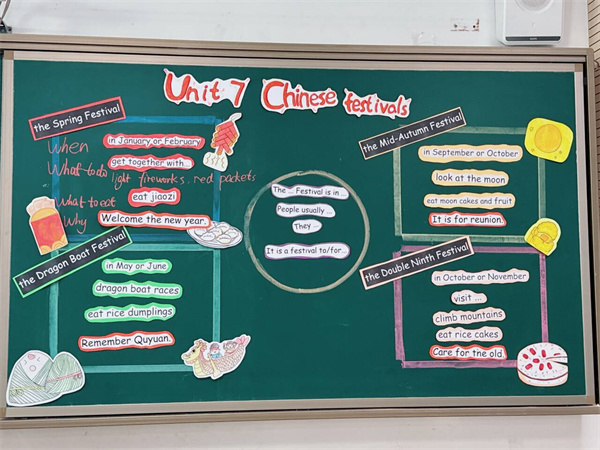 Unit 7 Chinese festivals
the Spring Festival
When
in January or February
get together with...
What to do light fireworks. red packets
What to eat
eat jiaozi
Why
Welcome the new year.
the Dragon Boat Festival
in May or June
dragon boat races
eat rice dumplings
Remember Quyuan.
The ... Festival is in ...
People usually ...
They ...
It is a festival to/for...
the Mid-Autumn Festival
in September or October
look at the moon
eat moon cakes and fruit
It is for reunion.
the Double Ninth Festival
in October or November
visit ...
climb mountains
eat rice cakes
Care for the old.